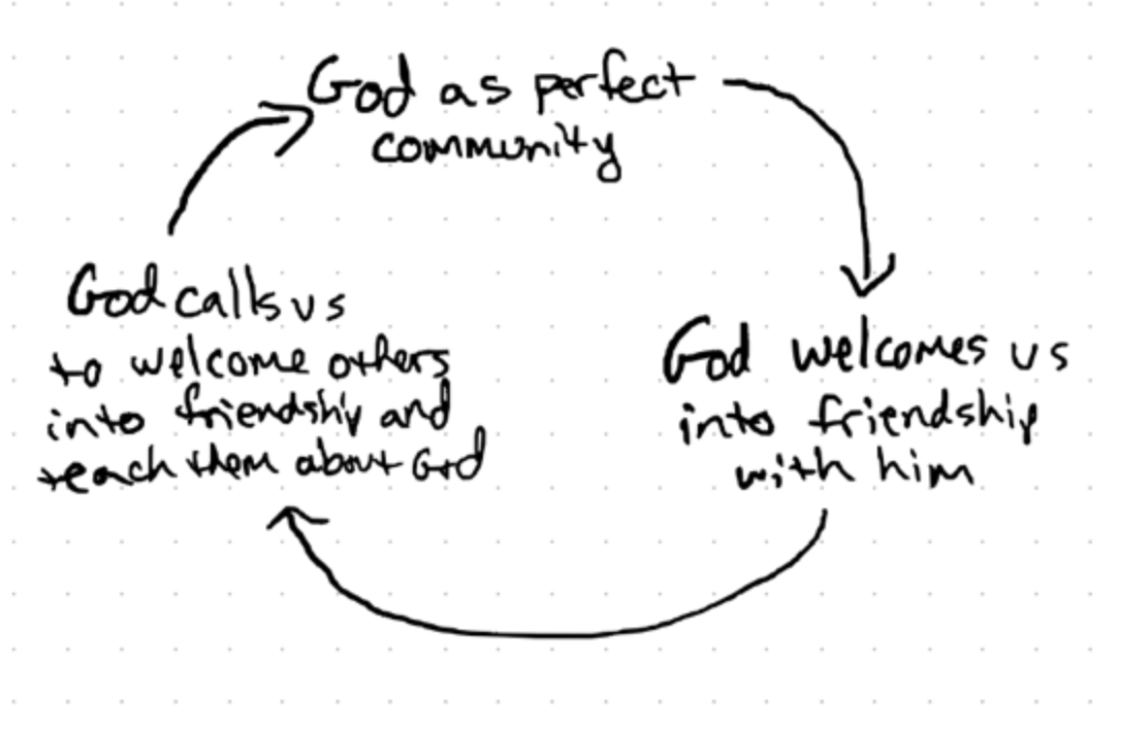 God as perfect
community
God welcomes us
into friendship
with him
God calls us
to welcome others
into friendship and
teach them about God